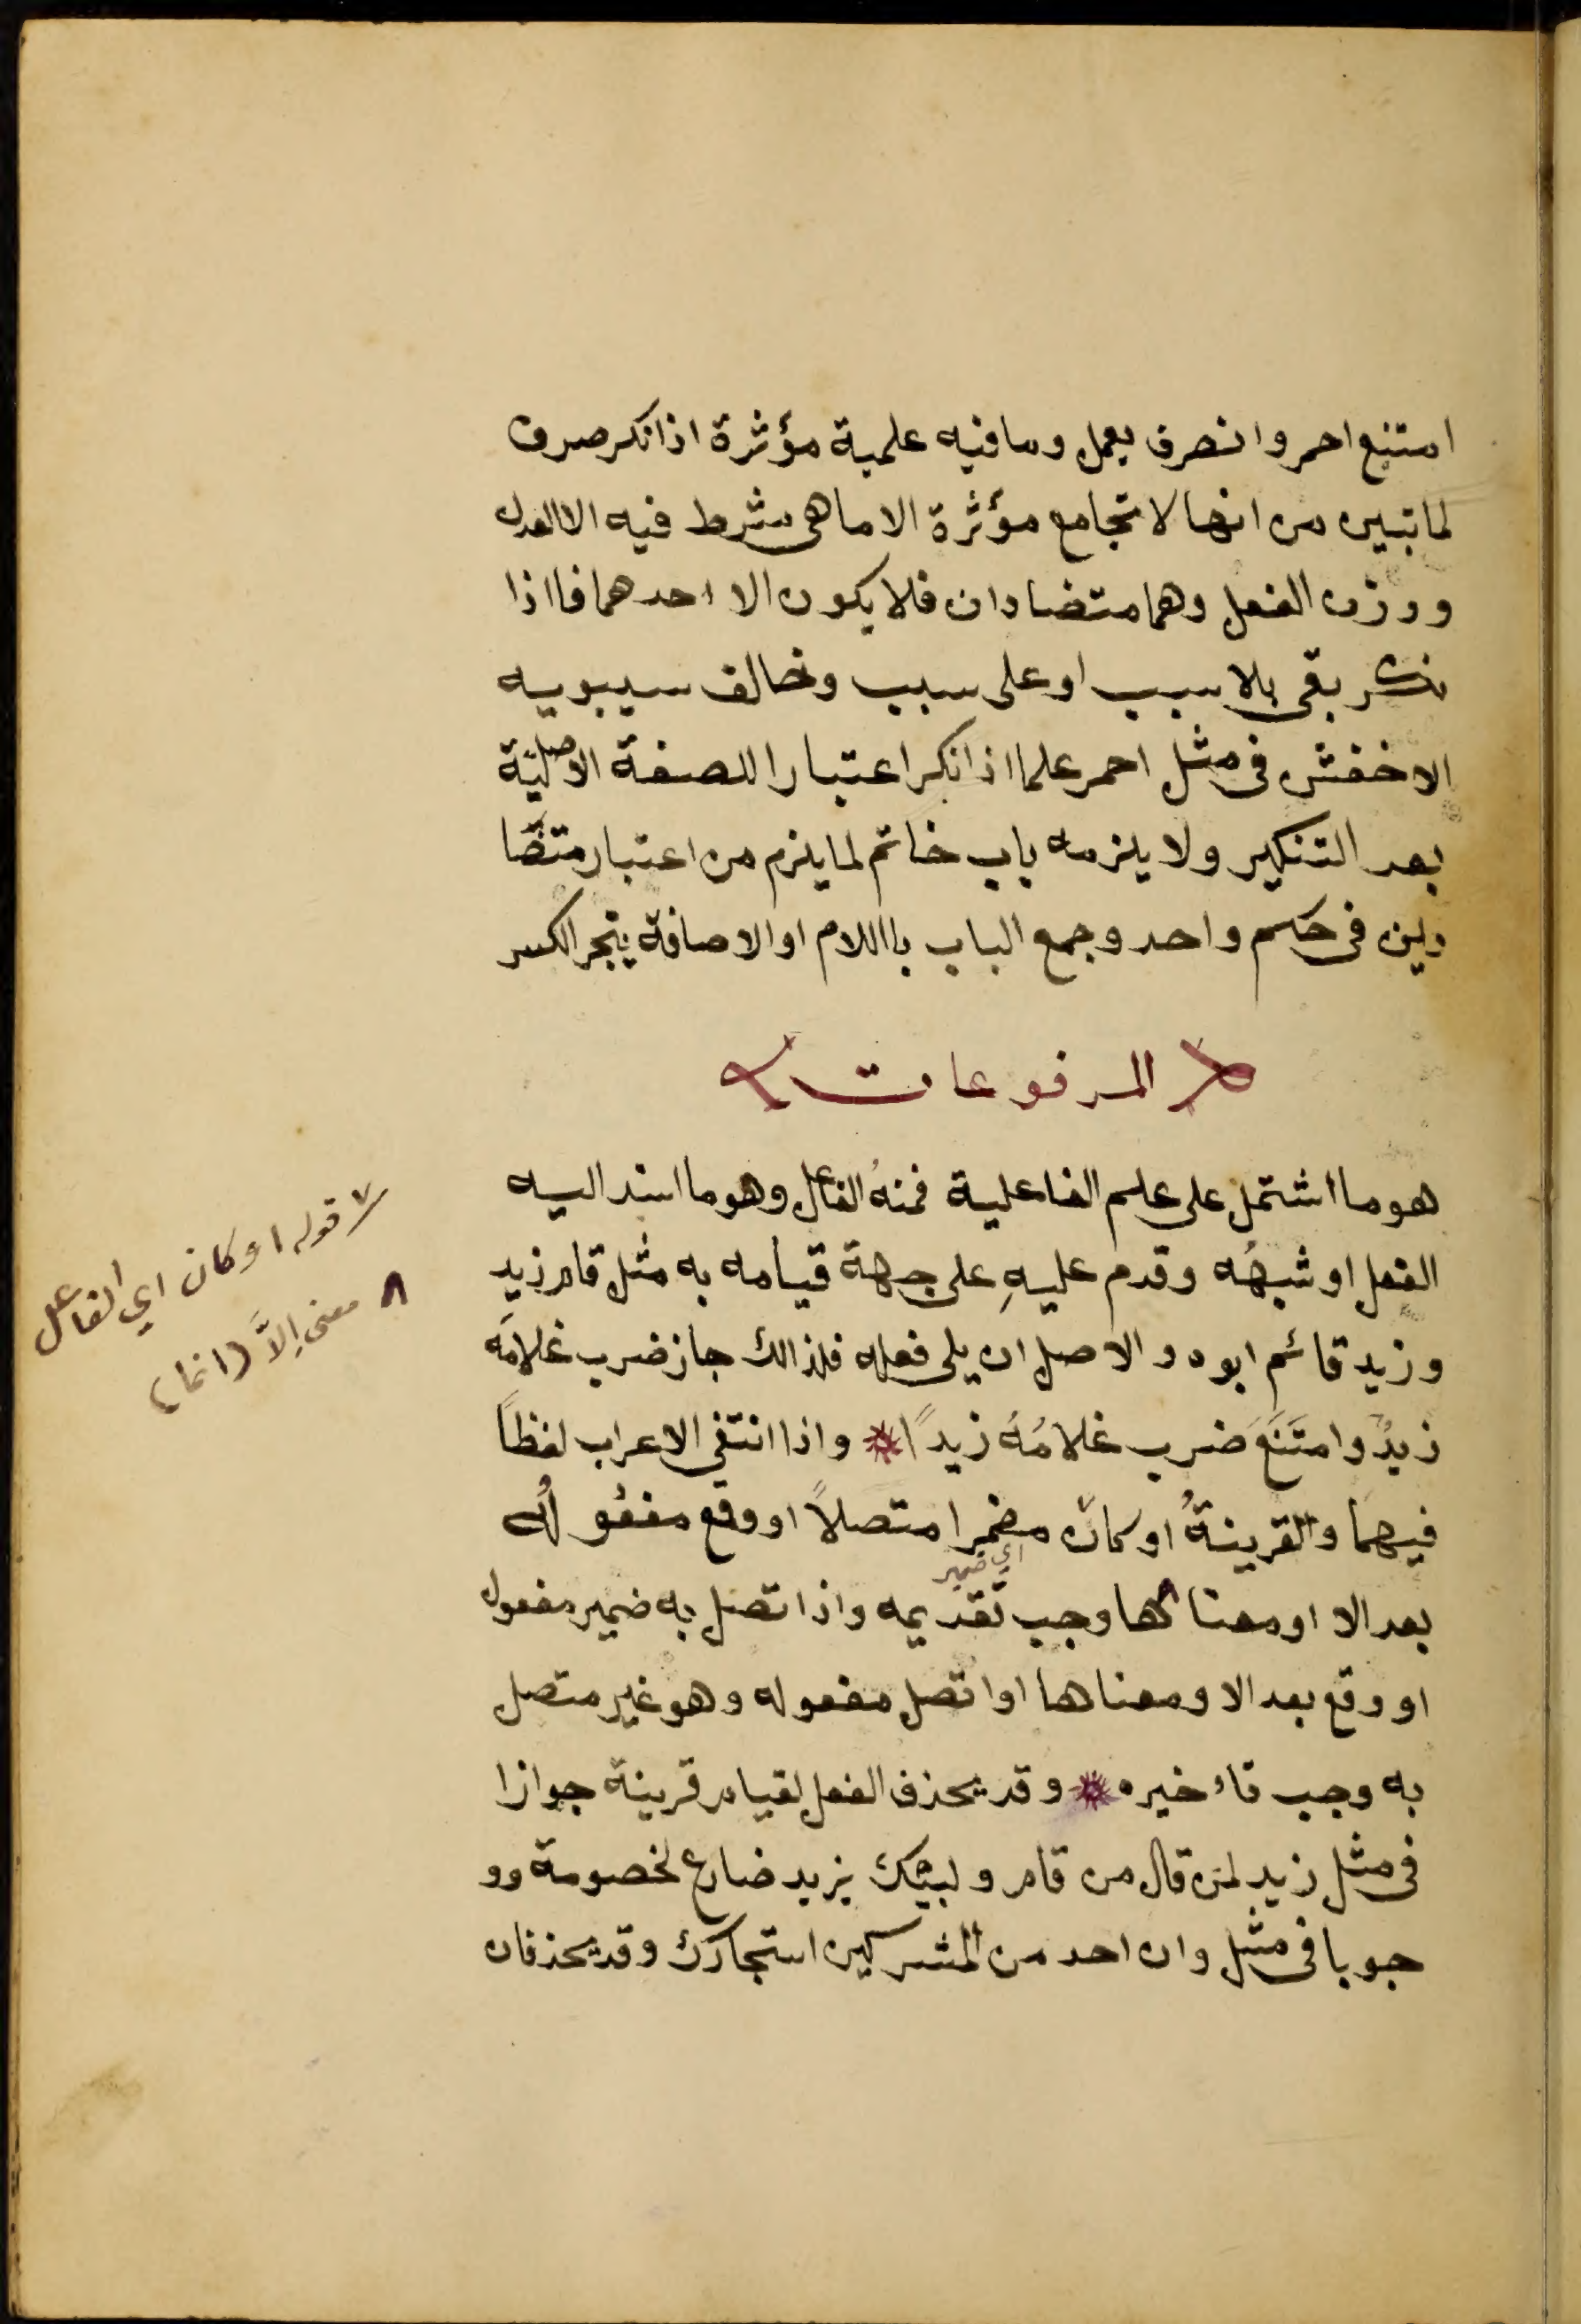 امتنع احمر وانصرف يعمل وما فيه علمية مؤثرة اذا نكر صرف
لما تبين من انها لا تجامع مؤثرة الا ما هي شرط فيه الا العدل
ووزن الفعل وهما متضادان فلا يكون الا احدهما فااذا
نكر بقي بلا سبب او على سبب وخالف سيبويه
الاخفش في مثل احمر علما اذا نكر اعتبارا للصفة الاصليّة
بعد التنكير ولا يلزمه باب خاتم لما يلزم من اعتبار متضّا
دين في حكم واحد وجمع الباب باللام او الاضافة ينجر الكسر
المرفوعات
هو ما اشتمل على علم الفاعلية فمنهُ الفاعل وهو ما اسند اليه
الفعل او شبهُه وقدم عليهِ على جهة قيامه به مثل قام زيد
وزيد قائم ابوه والاصل ان يلي فعله فلذالك جاز ضرب غلامَه
زيدٌ وامتَنَعَ ضرب غلامُهُ زيدًا * واذا انتفى الاعراب لفظاً
فيهما والقرينةُ او كان مضمرا متصلاً او وقع مفعُولُه
اي ضمير
بعد الا او معناها وجب تقديمه واذا تصل به ضمير مفعول
او وقع بعد الا ومعناها او اتصل مفعوله وهو غير متصل
به وجب تاءخيره * وقد يحذف الفعل لقيام قرينة جوازا
في مثل زيد لمن قال من قام وليبك يزيد ضارع لخصومة وو
جوبا في مثل وان احد من المشركين استجارك وقد يحذفان
٧ قوله او كان اي الفاعل
٨ معنى اِلاَّ (انما)